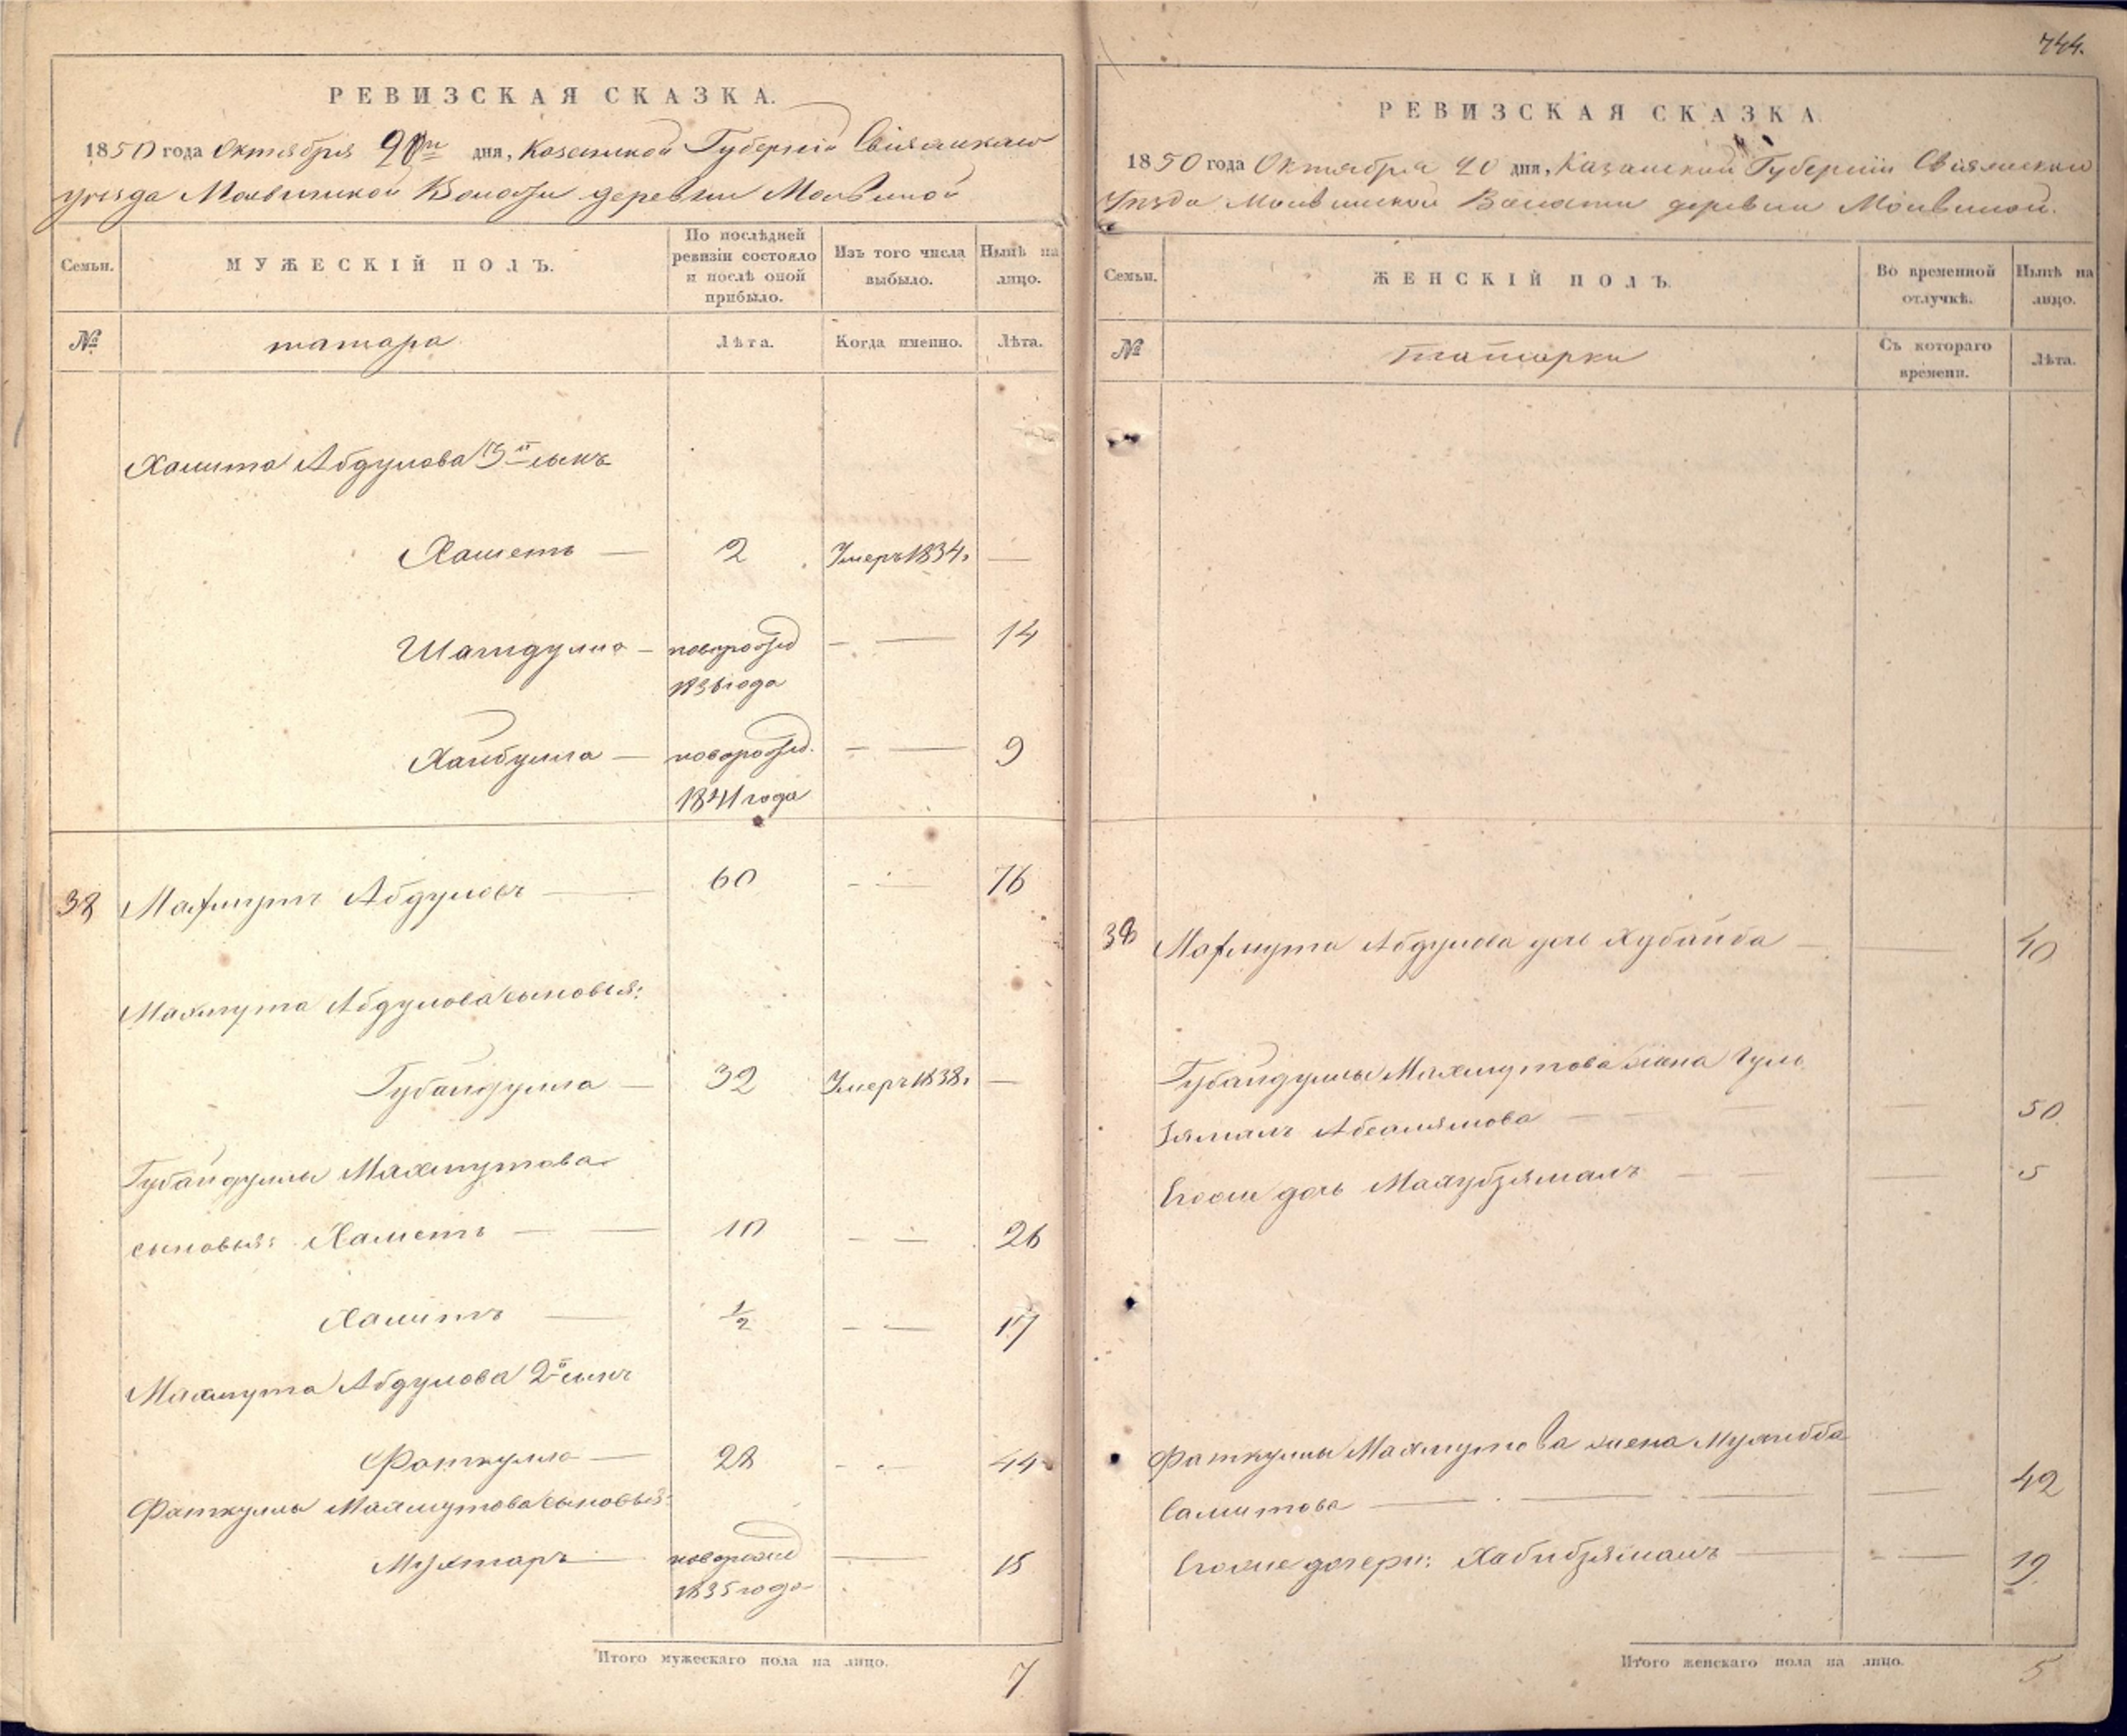 РЕВИЗСКАЯ СКАЗКА.
1850 года Октября 20го дня, Казанской Губернiи Свiяжскаго
уезда Молвинской Волости деревни Молвиной
Семьи.
МУЖЕСКIЙ ПОЛЪ.
По послѣдней ревизiи состояло и послѣ оной прибыло.
Изъ того числа выбыло.
Нынѣ на лицо.
№
татара
Лѣта.
Когда именно.
Лѣта.
Хамита Абдулова 3й сынъ
Хаметъ — 2 Умеръ 1834. —
Шагидулла — новорожд — — 14
1836 года
Хайбулла — новорожд. — — 9
1841 года
38 Махмутъ Абдуловъ — 60 — — 76
Махмута Абдулова сыновья:
Губайдулла — 32 Умеръ 1838. —
Губайдуллы Махмутова
сыновья: Хаметъ — — 10 — — 26
Хамитъ — 1/2 — — 17
Махмута Абдулова 2й сынъ
Фаткулла — 28 — — 44
Фаткуллы Махмутова сыновья:
Мухтаръ — новорожд — 15
1835 года
Итого мужескаго пола на лицо. 7
744.
РЕВИЗСКАЯ СКАЗКА
1850 года Октября 20 дня, Казанской Губернiи Свiяжскаго
Уѣзда Молвинской Волости деревни Молвиной.
Семьи.
ЖЕНСКIЙ ПОЛЪ.
Во временной отлучкѣ.
Нынѣ на лицо.
№
татарки
Съ котораго времени.
Лѣта.
38 Махмута Абдулова дочь Хубайба — — 40
Губайдуллы Махмутова жена Гуль
Зямалъ — — — 50
Его же дочь Махубзямалъ — — — 5
Фаткуллы Махмутова жена
Самитова — — — — 42
Его же дочери: Хабибзямалъ — — — 19.
Итого женскаго пола на лицо. 5